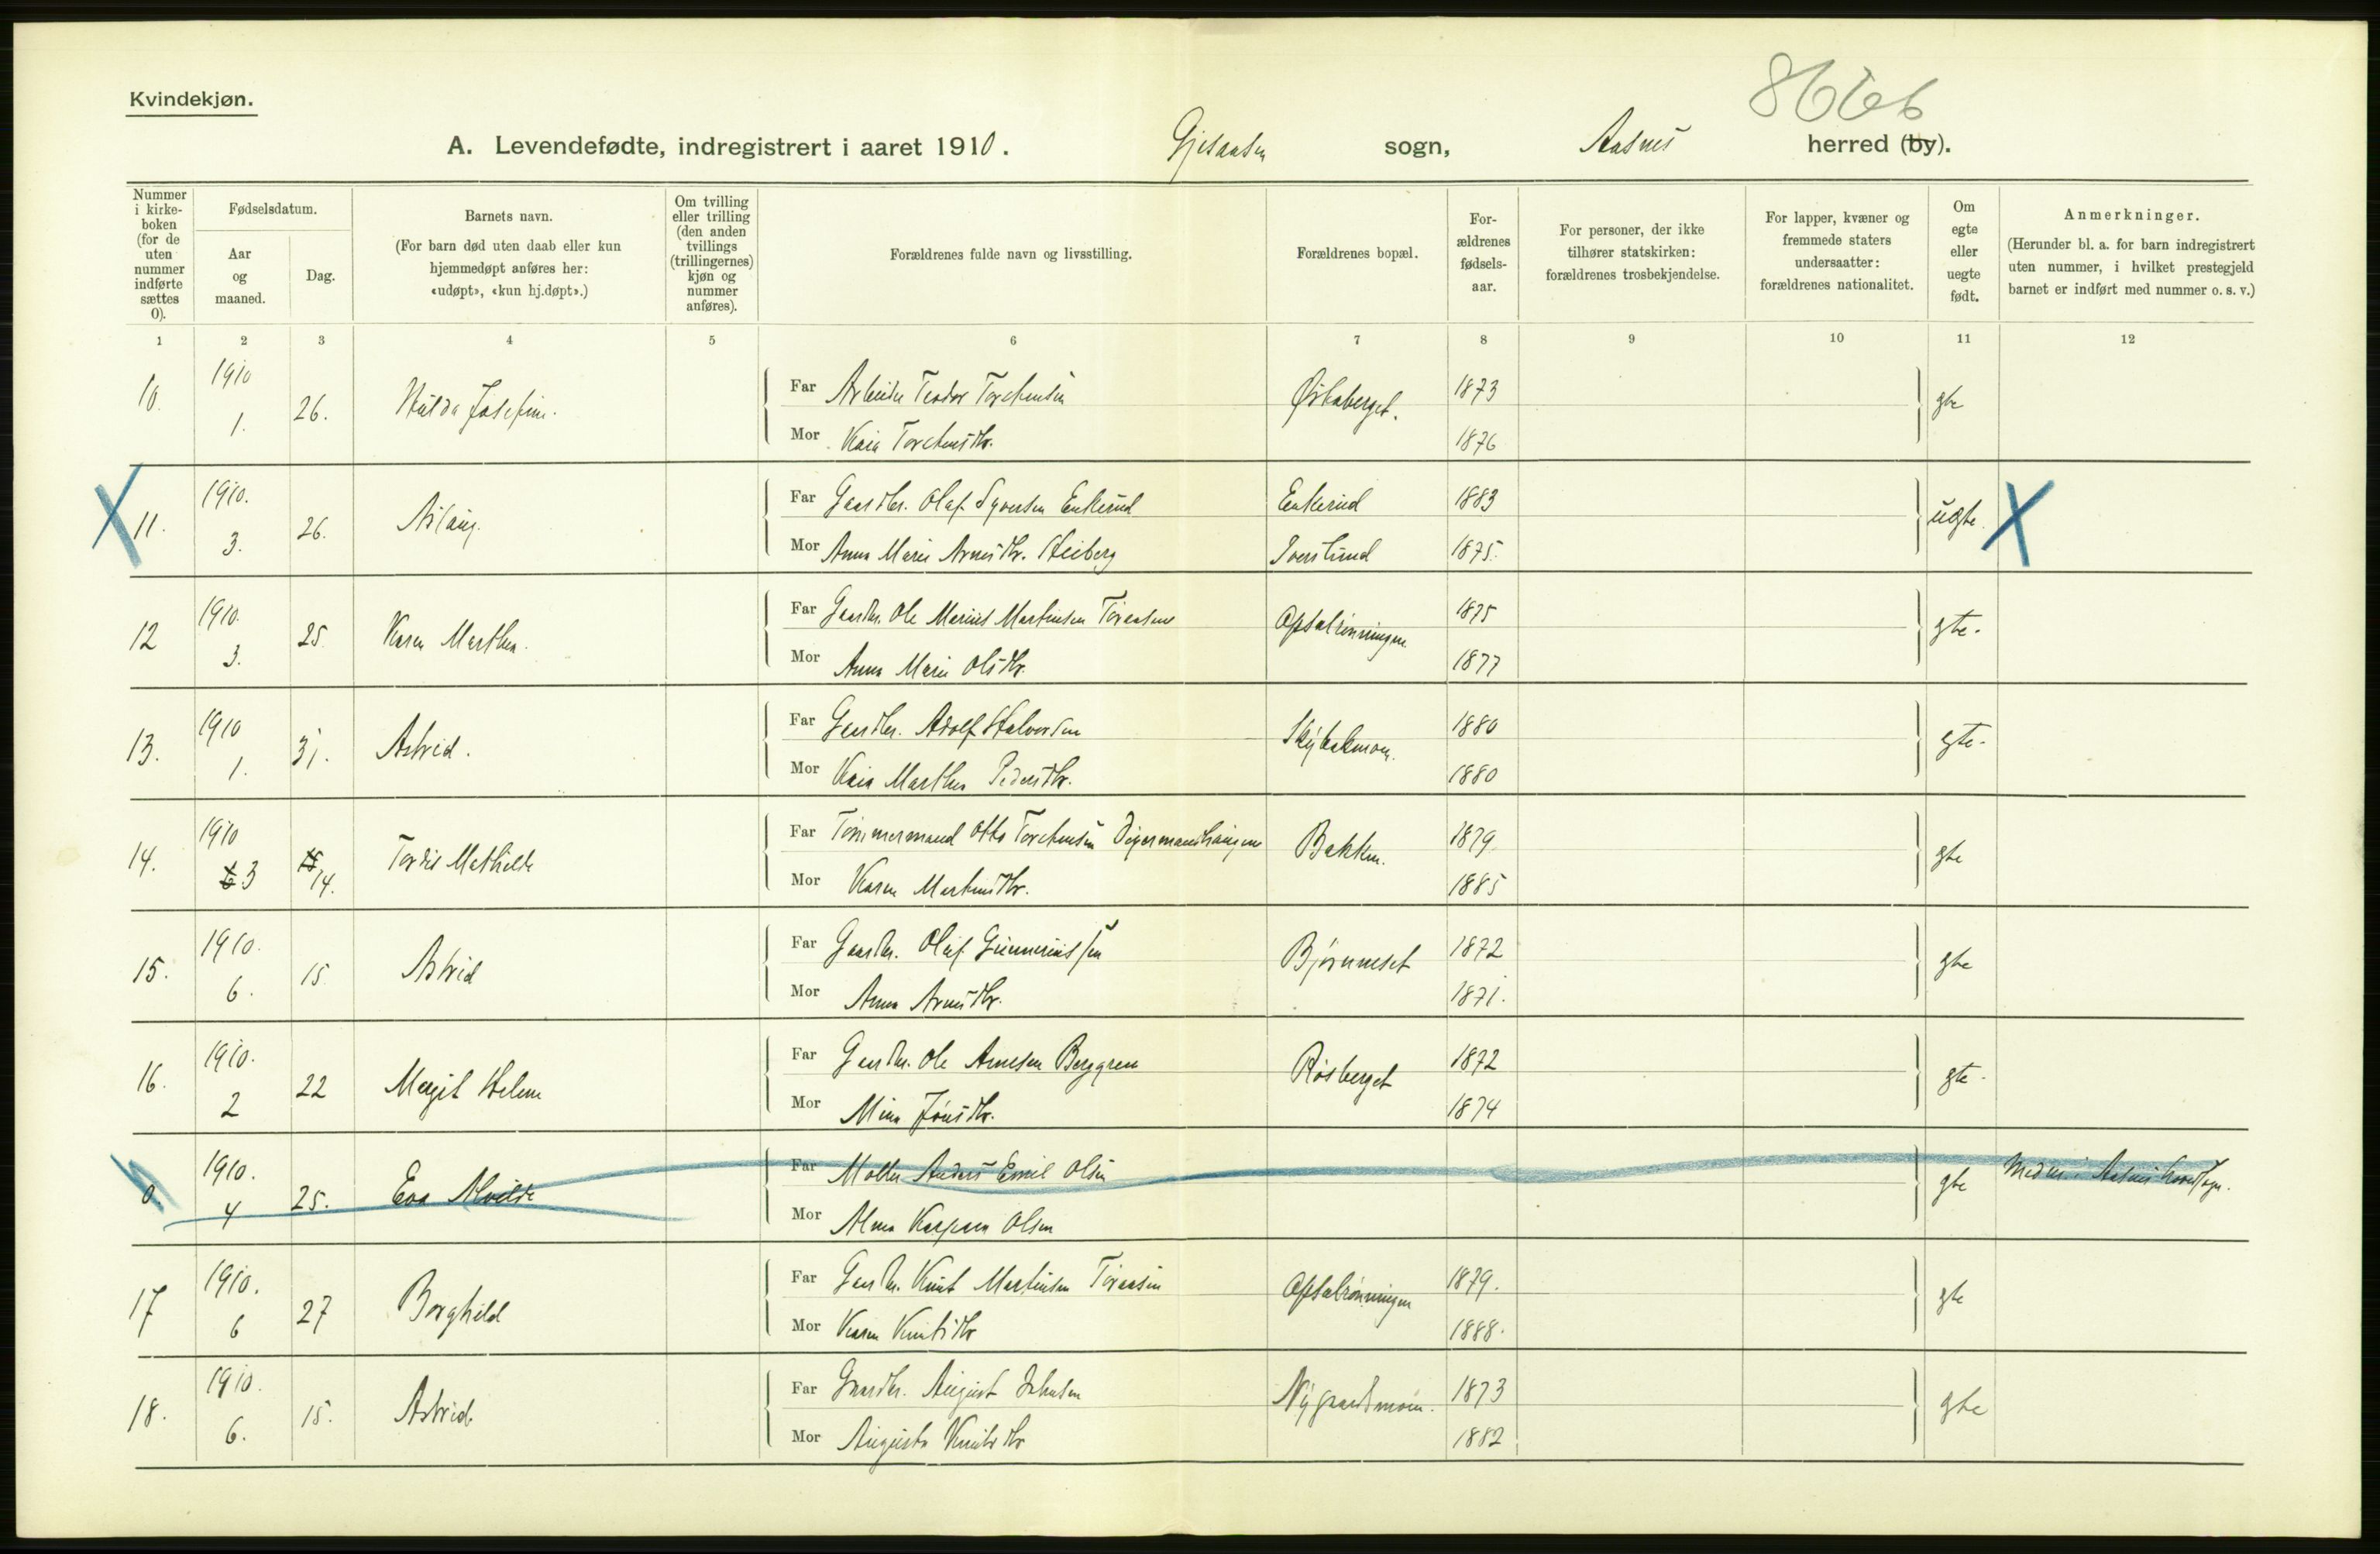 8666
Kvindekjøn.
A. Levendefødte, indregistrert i aaret 1910. Gjesaasen sogn, Aasnes herred (by).
Nummer i kirke-boken (for de uten nummer indførte sættes 0).
Fødselsdatum.
Aar og maaned.
Dag.
Barnets navn.
(For barn død uten daab eller kun hjemmedøpt anføres her: «udøpt», «kun hj.døpt».)
Om tvilling eller trilling (den anden tvillings (trillingernes) kjøn og nummer anføres).
Forældrenes fulde navn og livsstilling.
Forældrenes bopæl.
For-ældrenes fødsels-aar.
For personer, der ikke tilhører statskirken: forældrenes trosbekjendelse.
For lapper, kvæner og fremmede staters undersaatter: forældrenes nationalitet.
Om egte eller uegte født.
Anmerkninger.
(Herunder bl. a. for barn indregistrert uten nummer, i hvilket prestegjeld barnet er indført med nummer o. s. v.)
1 2 3 4 5 6 7 8 9 10 11 12
10. 1910 1. 26. Hulda Josefine. Far Arbeider Teodor Torstensen Øskaberget. 1873 gte
Mor Kaia Torstensdtr. 1876
X 11. 1910. 3. 26. Aslaug. Far Gaardbr. Olaf Syversen Enkerud Enkerud 1883 ugte. X
Mor Anna Marie Arnesdtr. Stieberg 1875.
12 1910. 3. 25. Karen Marthea. Far Gaardbr. Ole Marius Martinsen Opsalrønningen 1875 gte.
Mor Anna Marie Olsdtr. 1877
13. 1910 1. 31. Astrid. Far Gaardbr. Adolf Halvorsen 1880 gte.
Mor Kaia Marthea Pedersdtr. 1880
14. 1910 6 3 15 14. Tordis Mathilde Far Tømmermand Otto Torstensen Bakken. 1879 gte
Mor Karen Martinsdtr. 1885
15. 1910. 6. 15. Astrid Far Gaardbr. Olaf Gunneriussen Bjørneset 1872 gte
Mor Anna Arnesdtr. 1871.
16. 1910. 2 22 Margit Helene Far Gaardbr. Ole Arnesen Berggren Røsberget 1872 gte.
Mor Mina Jonsdtr. 1874
0. 1910. 4 25. Eva Alvilde Far Møller Anders Emil Olsen gte Medn. i Aasnes hovedsogn.
Mor Alma Olsen
17 1910. 6 27 Borghild Far Gaardbr. Knut Martinsen Opsalrønningen 1879. gte
Mor Karen Knutsdtr 1888.
18. 1910. 6. 15. Astrid Far Gaardbr. August Johnsen Nygaardsmoen. 1873 gte
Mor Augusta Knutsdtr 1882